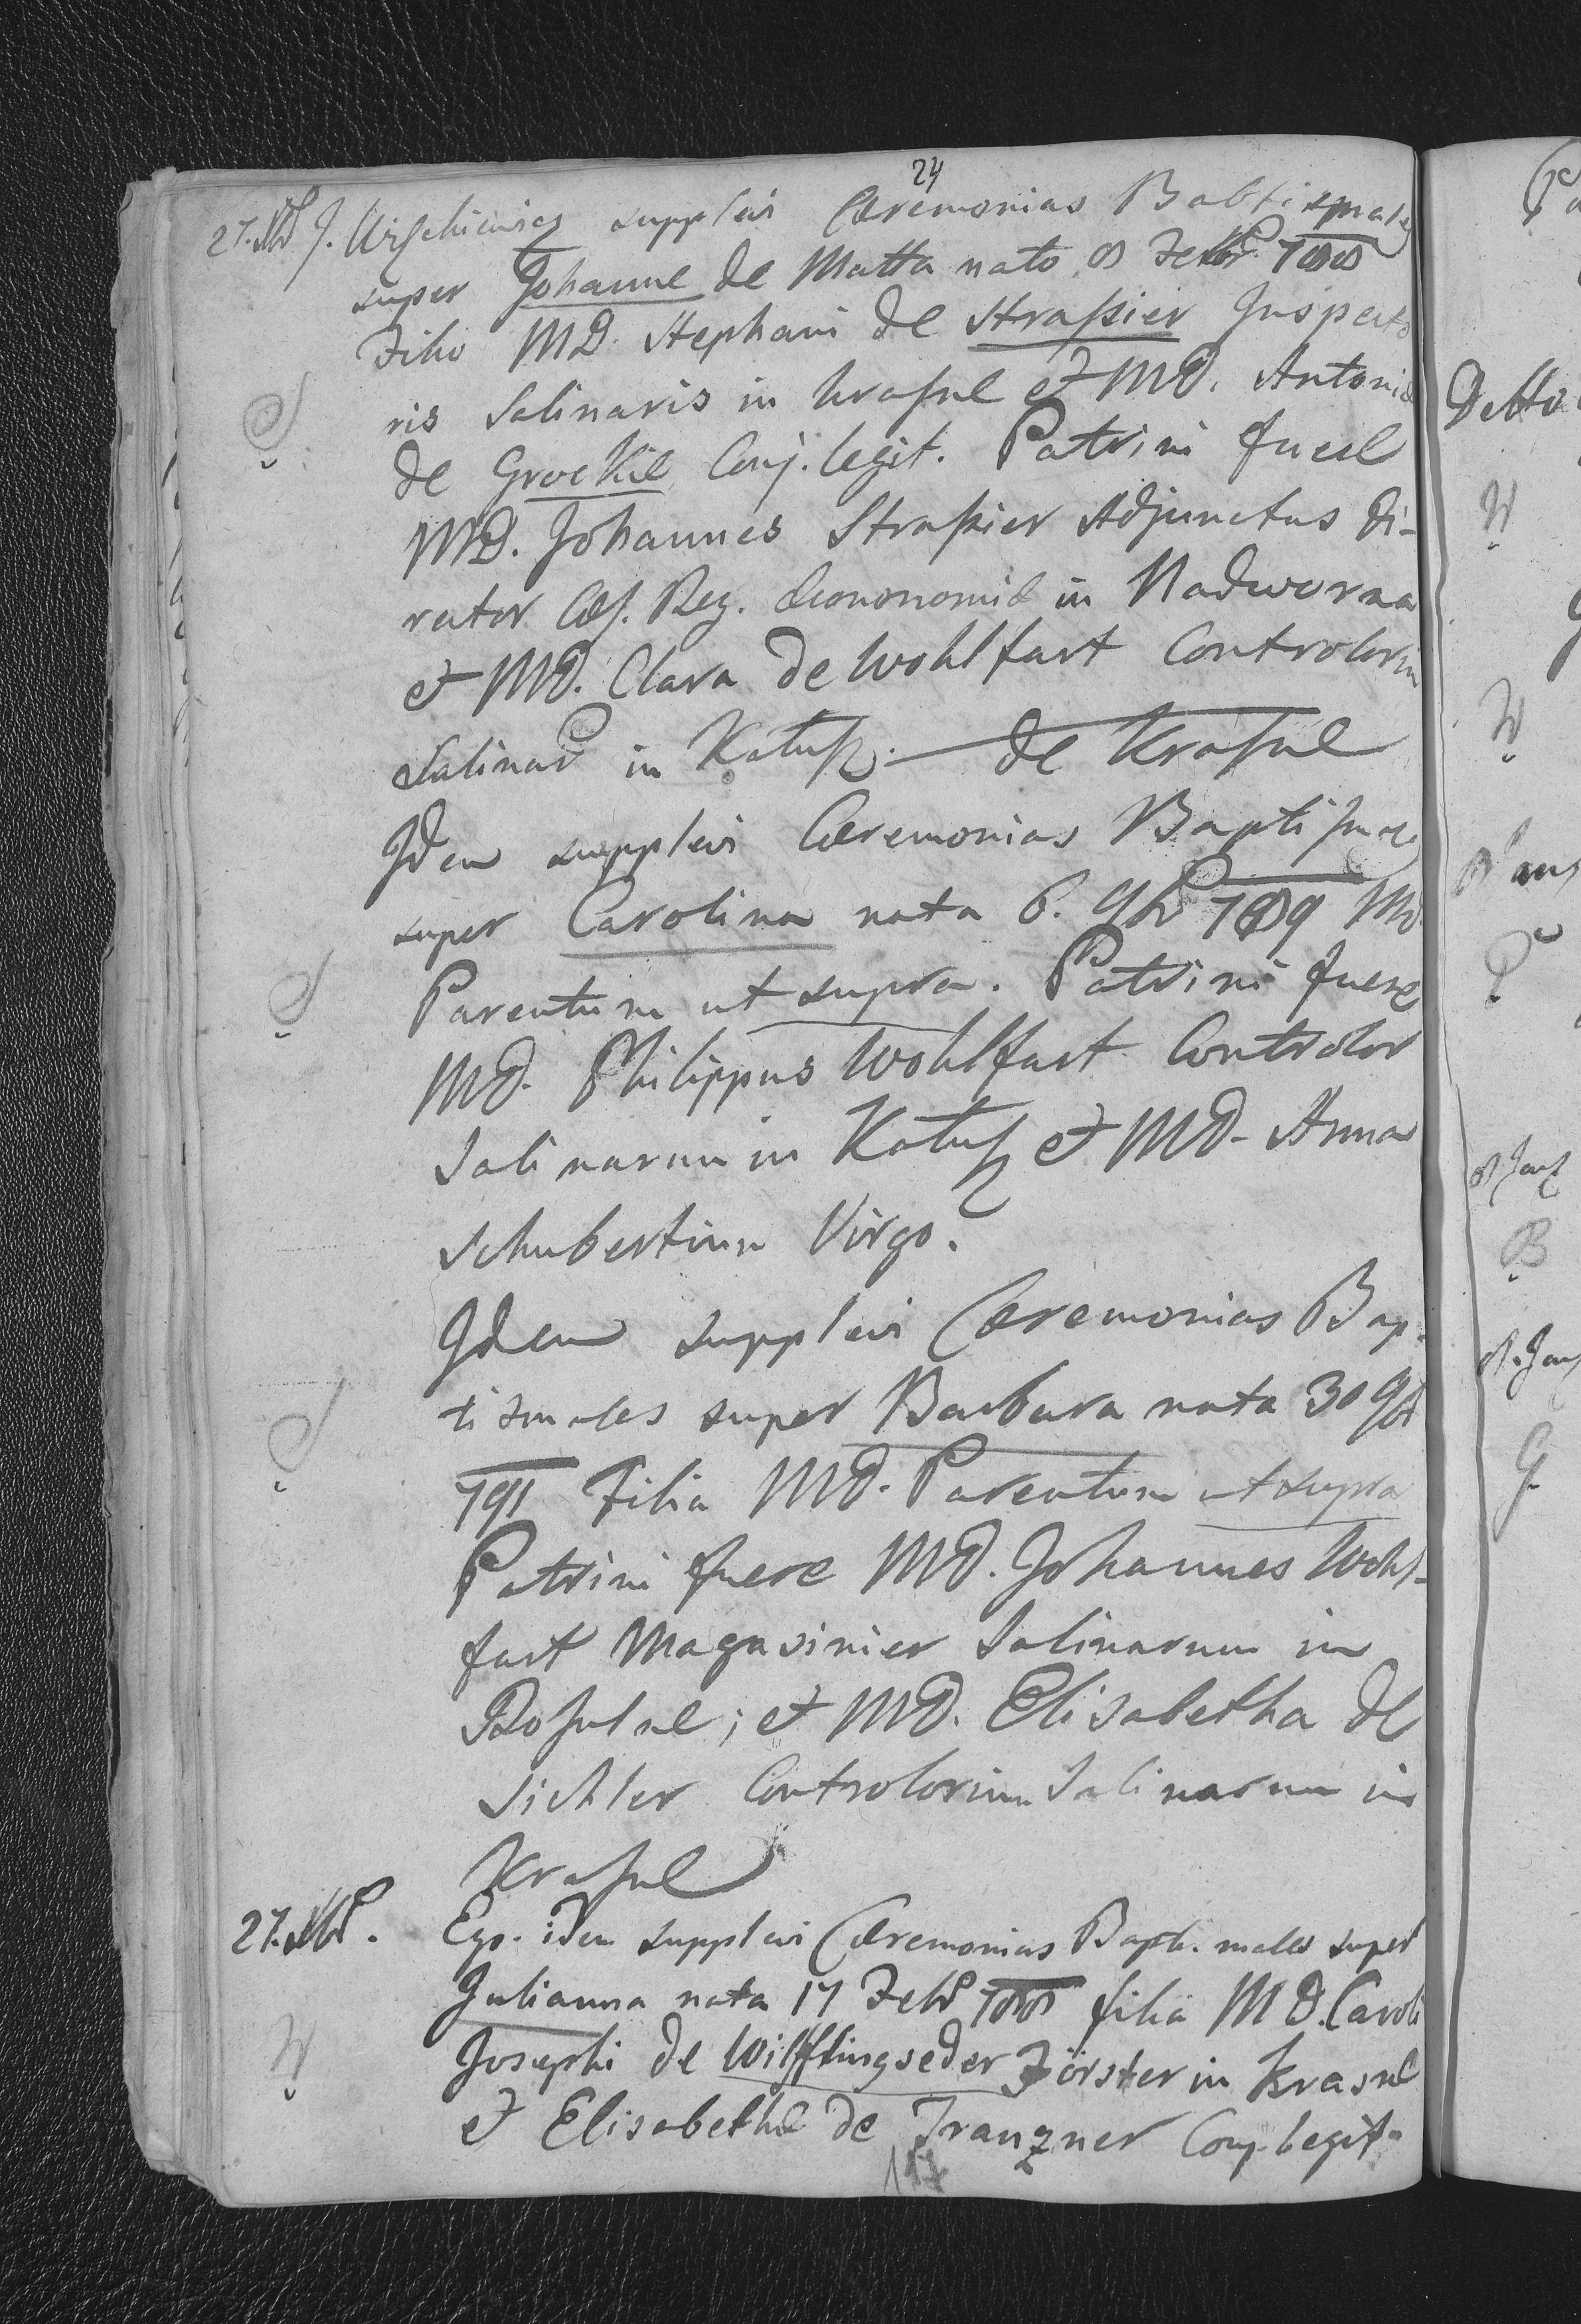 24
27. Xbr J. supplevi Cæremonias Babtismales
super Johanne de Matta nato 8 Febr 788
Filio MD. Stephani de Straßier Inspecto
ris Salinaris in Kraßne et MD. Antoniæ
de Groekie Conj. legit. Patrini fuere
MD. Johannes Straßier Adjunctus Di-
rector Cæs. Reg. Oeconomiæ in Nadworna
et MD. Clara de Wohlfart Controlorin
Salinar in Katusz. — de Kraßne
Idem supplevi Cæremonias Baptismales
super Carolina nata 6. 9br 789 MD
Parentum ut supra. Patrini fuere
MD. Philippus Wohlfart Controlor
Salinarum in Katusz et MD. Anna
Schubertinn Virgo.
Idem supplevi Cæremonias Bap-
tismales super Barbara nata 30 9br
791 Filia MD. Parentum ut supra
Patrini fuere MD. Johannes Wohl-
fart Magasinier Salinarum in
Rosulne; et MD. Elisabetha de
Sichler Controlorinn Salinarum in
Kraßne
27. Xbr. Ego idem supplevi Cæremonias Bapti.males super
Julianna nata 17 Febr 788 filia MD. Caroli
Josephi de Wilfflingseder Förster in Krasne
et Elisabethæ de Tranzner Conj. legit.
117
S
S
S
W
Detto
W
W
B
G